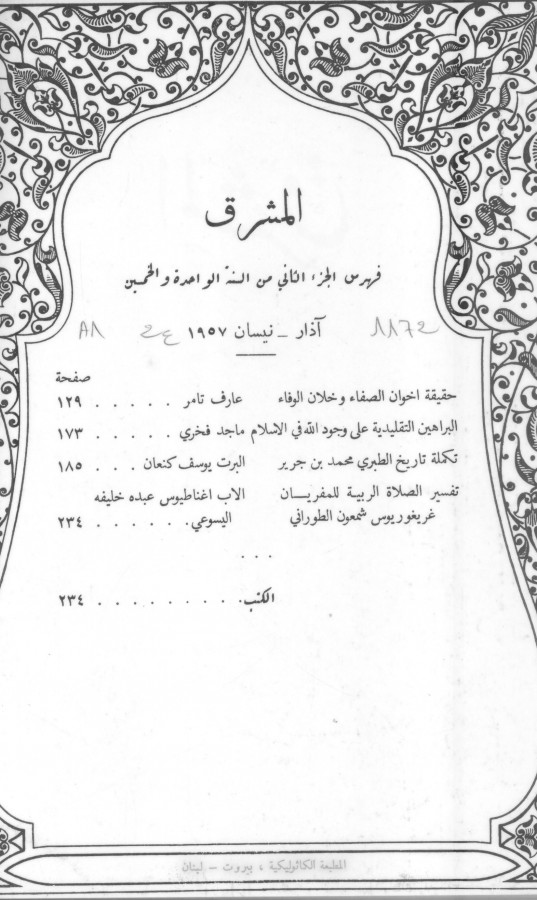 المشرق
فهرس الجزء الثاني من السنة الواحدة والخمسين
آذار - نيسان ١٩٥٧
صفحة
حقيقة اخوان الصفاء وخلان الوفاء عارف تامر . . . . . . ١٢٩
البراهين التقليدية على وجود الله في الاسلام ماجد فخري . . . . . ١٧٣
تكملة تاريخ الطبري محمد بن جرير البرت يوسف كنعان . . . ١٨٥
تفسير الصلاة الربية للمفريان الاب اغناطيوس عبده خليفه
غريغوريوس شمعون الطوراني اليسوعي . . . . . . ٢٣٤
. . .
الكتب . . . . . . . . . ٢٣٤
المطبعة الكاثوليكية ، بيروت - لبنان